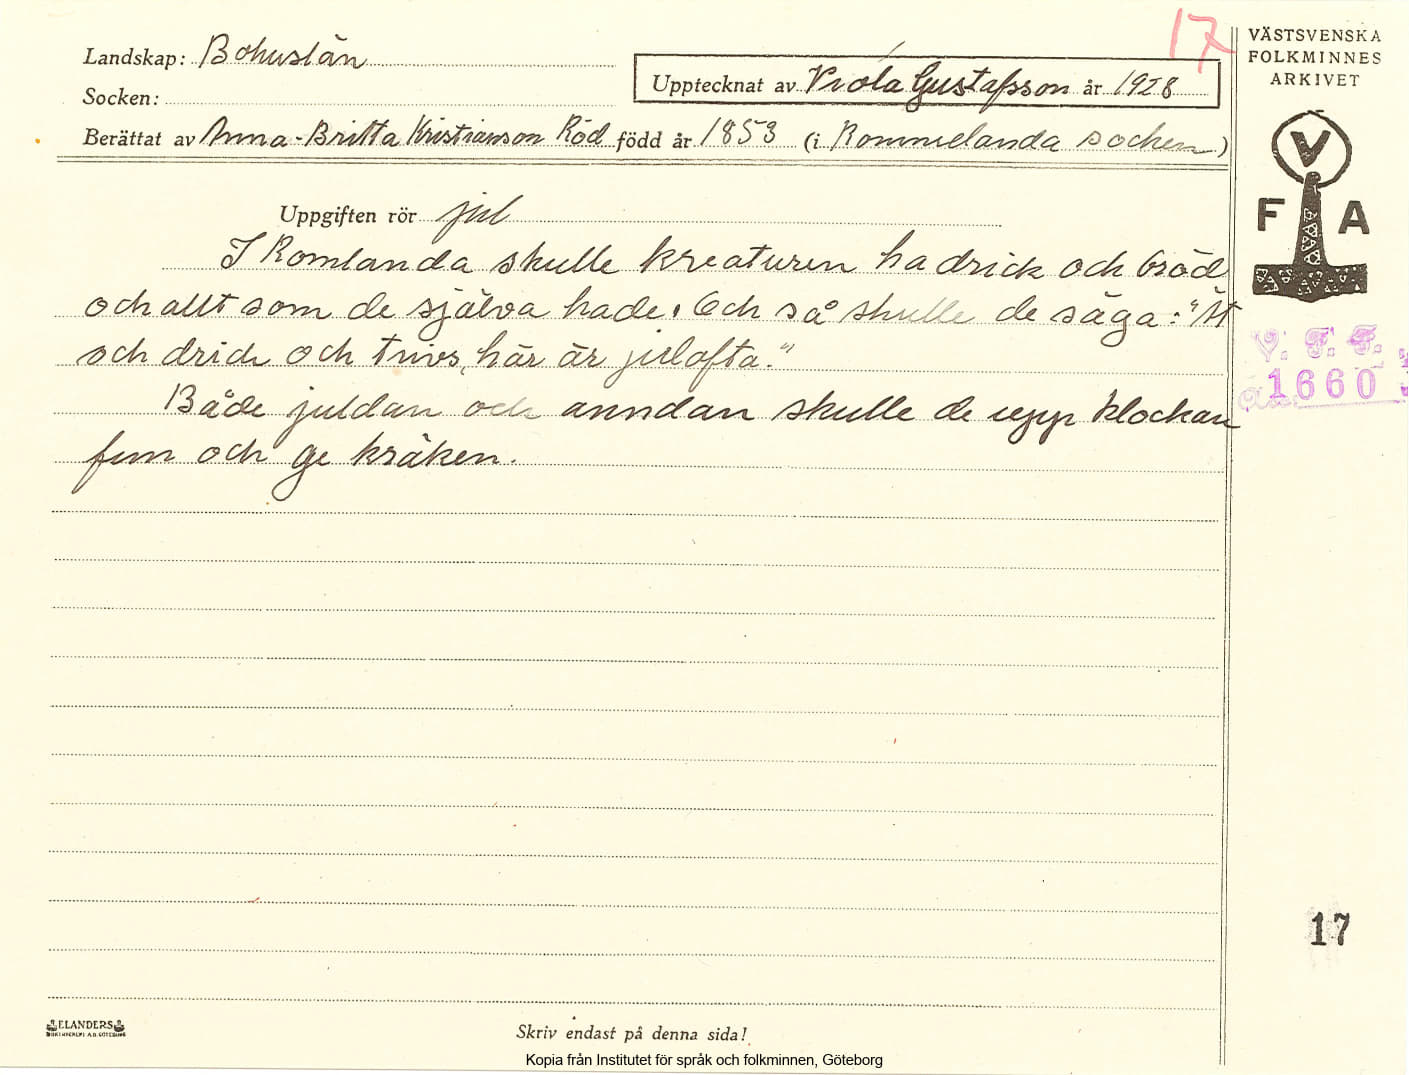 17
VÄSTSVENSKA
FOLKMINNES
ARKIVET
Landskap: Bohuslän
Upptecknat av Viola Gustafsson år 1928
Socken:
Berättat av Anna-Britta Kristianson Röd född år 1853 (i Rommelanda socken)
V
F A
Uppgiften rör jul
I Romlanda skulle kreaturen ha drick och bröd
och allt som de själva hade. Och så skulle de säga: "Ät
och drick och trivs, här är julofta."
Både juldan och anndan skulle de upp klockan
fem och ge kräken.
V. F. F.
1660
17
ELANDERS
Skriv endast på denna sida!
Kopia från Institutet för språk och folkminnen, Göteborg